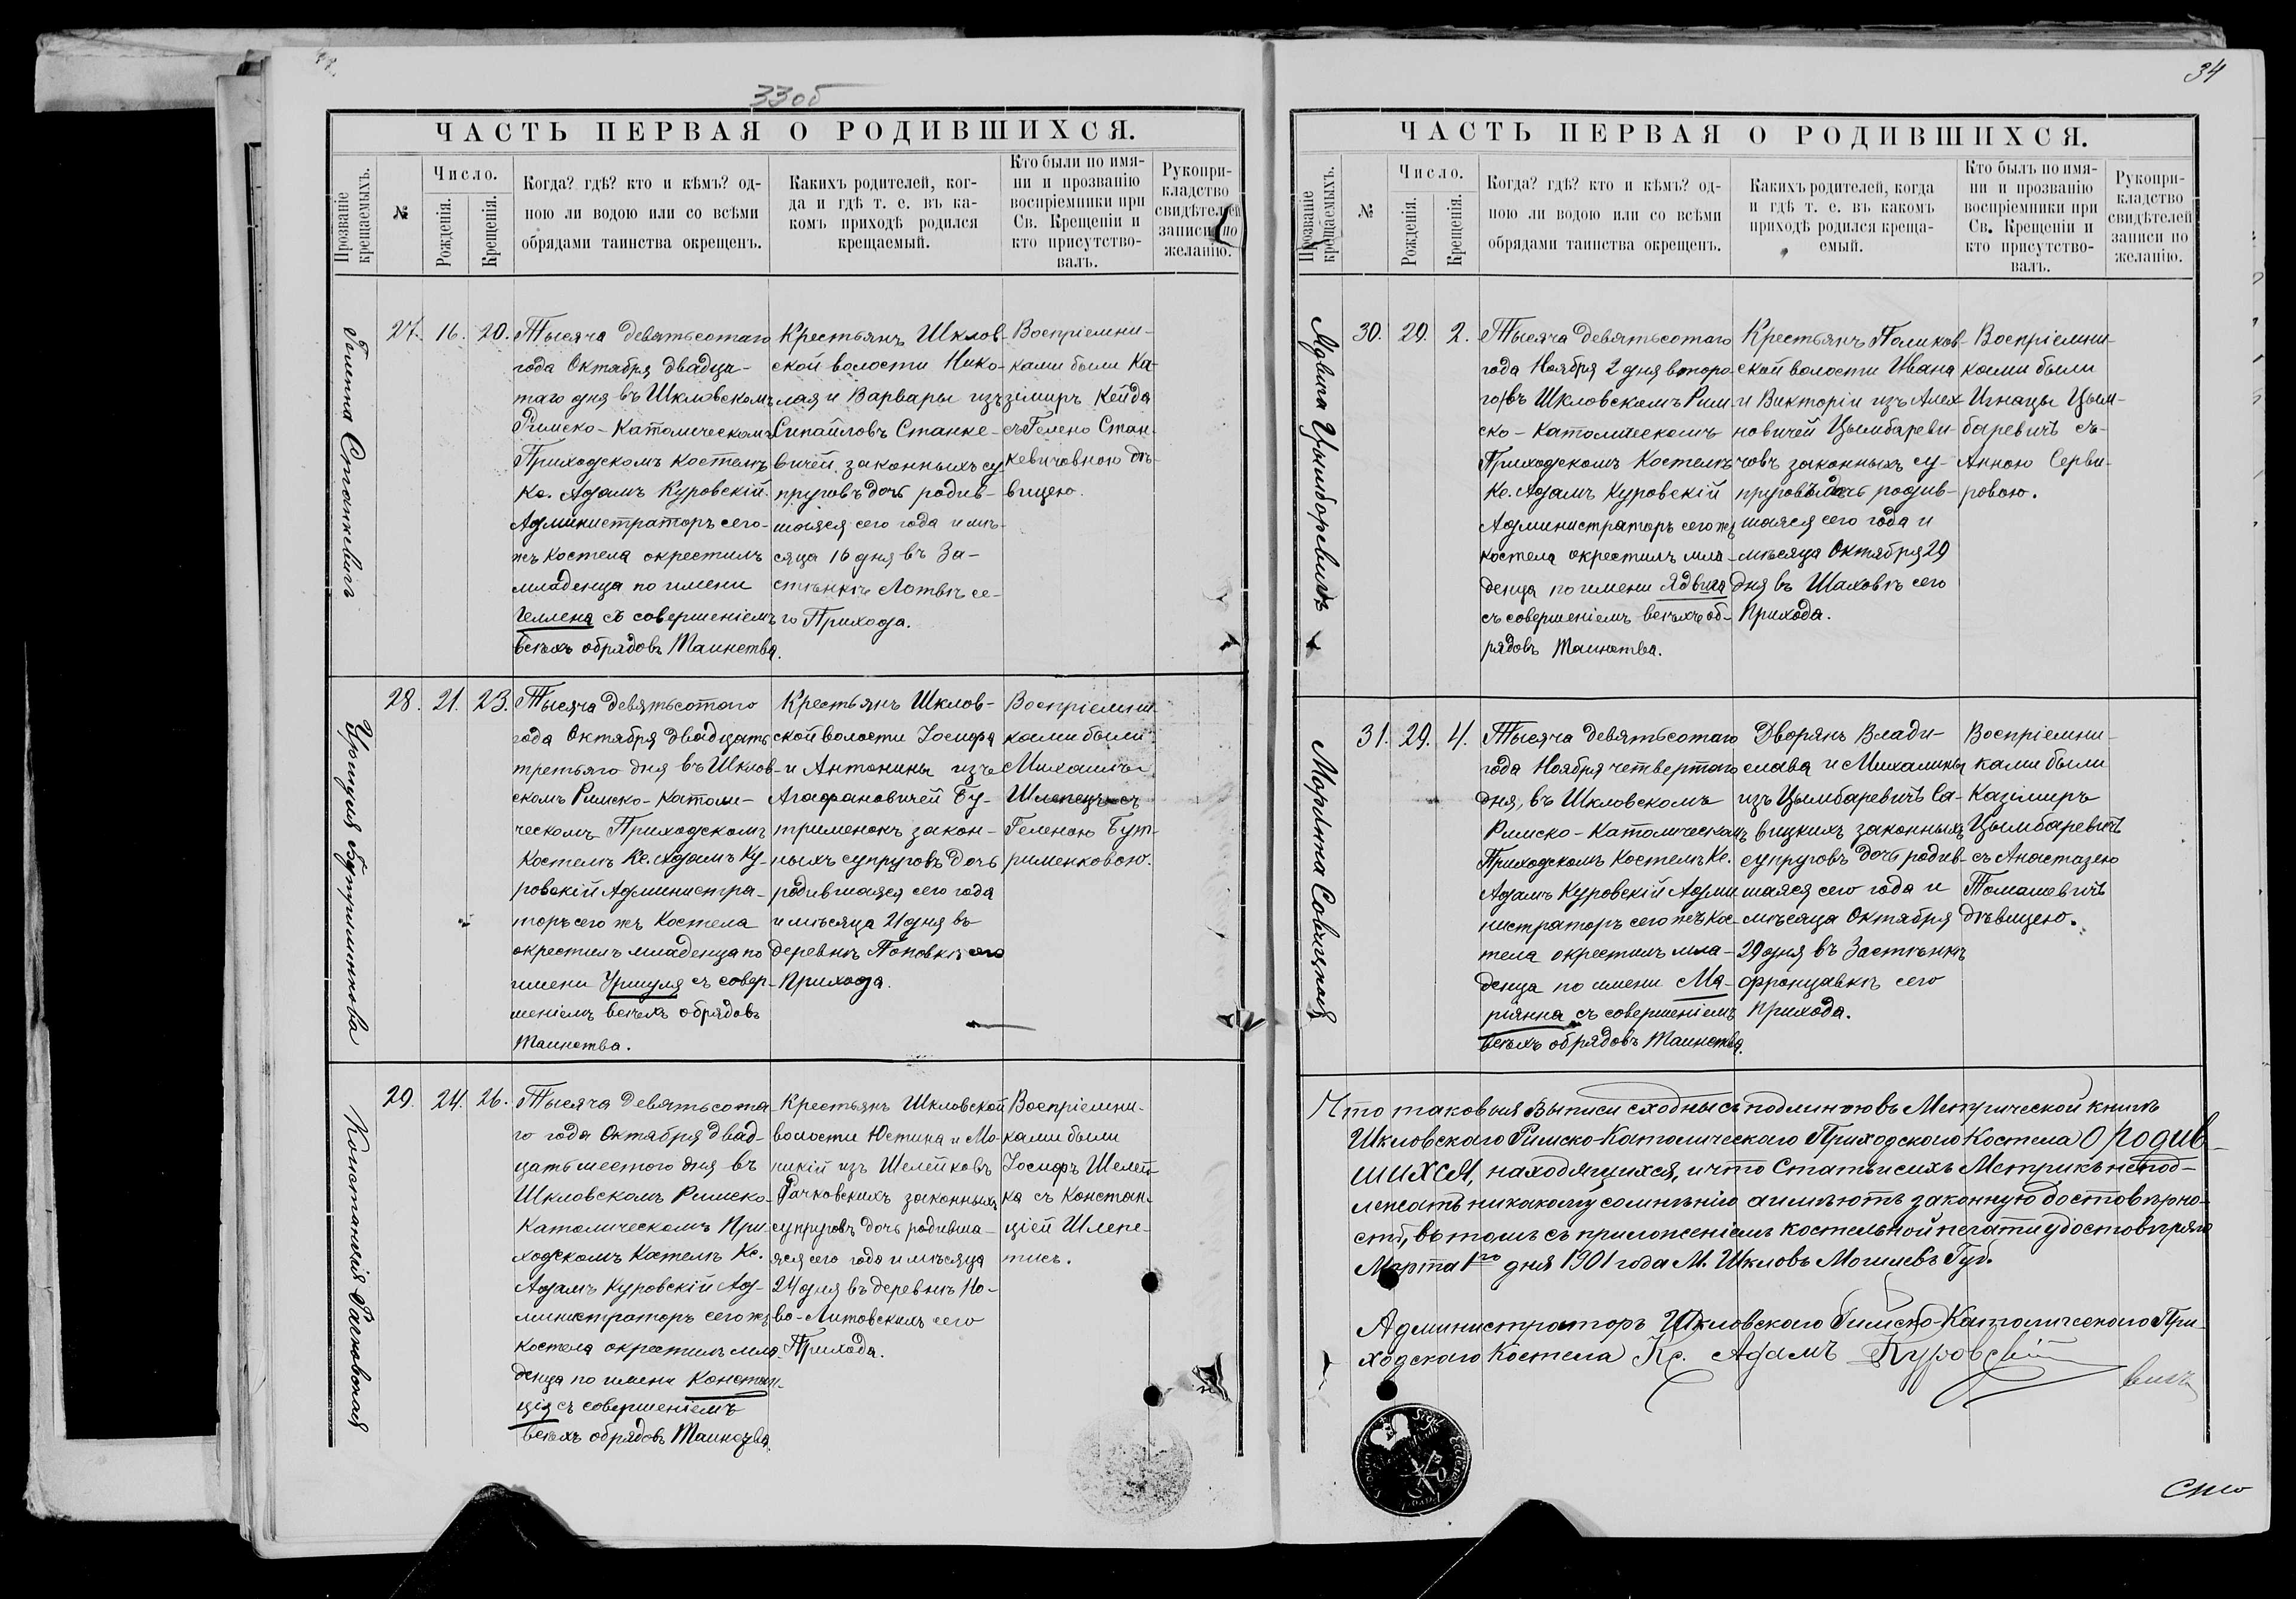 33об
ЧАСТЬ ПЕРВАЯ О РОДИВШИХСЯ.
Прозваніе крещаемыхъ.
№
Число.
Рожденія.
Крещенія.
Когда? гдѣ? кто и кѣмъ? од-
ною ли водою или со всѣми
обрядами таинства окрещенъ.
Какихъ родителей, ког-
да и гдѣ т. е. въ ка-
комъ приходѣ родился
крещаемый.
Кто были по имя-
ни и прозванію
воспріемники при
Св. Крещеніи и
кто присутство-
валъ.
Рукопри-
кладство
свидѣтелей
записи по
желанію.
Станкевичъ
27. 16. 20.
Тысяча девятьсотаго
года Октября двадца-
таго дня въ Шкловскомъ
Римско-Католическомъ
Приходскомъ костелѣ
Кс. Адамъ Куровскій
Администраторъ сего-
жъ костела окрестилъ
младенца по имени
Гелена съ совершеніемъ
всѣхъ обрядовъ Таинства.
Крестьянъ Шклов-
ской волости Нико-
лая и Варвары изъ
Сипайловъ Станке-
вичей, законныхъ су
пруговъ дочь родив-
шаяся сего года и мѣ-
сяца 16 дня въ За-
стѣнкѣ Лотвѣ се-
го Прихода.
Воспріемни-
ками были Ка-
зіміръ Кейда
съ Гелено Стан-
кевичовною дѣ-
вицею.
Уршуля Бутрименкова
28. 21. 23.
Тысяча девятьсотаго
года Октября двадцать
третьяго дня въ Шклов-
скомъ Римско-Католи-
ческомъ Приходскомъ
Костелѣ Кс. Адамъ Ку-
ровскій Администра-
торъ сего жъ Костела
окрестилъ младенца по
имени Уршуля съ совер-
шеніемъ всѣхъ обрядовъ
Таинства.
Крестьянъ Шклов-
ской волости Іосифа
и Антонины изъ
Агафановичей Бу-
трименокъ закон-
ныхъ супруговъ дочь
родившаяся сего года
и мѣсяца 21 дня въ
деревнѣ Поповкѣ сего
Прихода.
Воспріемни-
ками были
Михаилъ
Шлепецъ съ
Геленою Бут-
рименковою.
Констанція Рачковская
29. 24. 26.
Тысяча девятьсота-
го года Октября двад-
цать шестого дня въ
Шкловскомъ Римско-
Католическомъ При-
ходскомъ Костелѣ Кс.
Адамъ Куровскій Ад-
министраторъ сего жъ
костела окрестилъ мла-
денца по имени Констан-
ція съ совершеніемъ
всѣхъ обрядовъ Таинства.
Крестьянъ Шкловской
волости Юстина и Мо-
никій изъ Шелейковъ
Рачковскихъ законныхъ
супруговъ дочь родивша-
яся сего года и мѣсяца
24 дня въ деревнѣ Но-
во-Литовскимъ сего
Прихода.
Воспріемни-
ками были
Іосифъ Шелей-
ка съ Констан-
ціей Шлепе-
тись.
34
ЧАСТЬ ПЕРВАЯ О РОДИВШИХСЯ.
Прозваніе крещаемыхъ.
№
Число.
Рожденія.
Крещенія.
Когда? гдѣ? кто и кѣмъ? од-
ною ли водою или со всѣми
обрядами таинства окрещенъ.
Какихъ родителей, когда
и гдѣ т. е. въ какомъ
приходѣ родился креща-
емый.
Кто былъ по имя-
ни и прозванію
воспріемники при
Св. Крещеніи и
кто присутство-
валъ.
Рукопри-
кладство
свидѣтелей
записи по
желанію.
Ядвига Цымборевичъ
30. 29. 2.
Тысяча девятьсотаго
года Ноября 2 дня второ-
го въ Шкловскомъ Рим-
ско-Католическомъ
Приходскомъ Костелѣ
Кс. Адамъ Куровскій
Администраторъ сего жъ
костела окрестилъ мла-
денца по имени Ядвига
съ совершеніемъ всѣхъ об-
рядовъ Таинства.
Крестьянъ Поликов-
ской волости Ивана
и Викторіи изъ Алех-
новичей Цымбареви-
човъ законныхъ су-
пруговъ дочь родив-
шаяся сего года и
мѣсяца Октября 29
дня въ Шаховкѣ сего
Прихода.
Воспріемни-
ками были
Игнацы Цым-
баревичъ съ-
Анною Серви-
ровою.
Савицкая
31. 29. 4.
Тысяча девятьсотаго
года Ноября четвертаго
дня, въ Шкловскомъ
Римско-Католическомъ
Приходскомъ Костелѣ Кс.
Адамъ Куровскій Адми
нистраторъ сего жъ Кос-
тела окрестилъ мла-
денца по имени Ма-
ріянна съ совершеніемъ
всѣхъ обрядовъ Таинства.
Дворянъ Влади-
слава и Михалины
изъ Цымбаревичъ Са-
вицкихъ законныхъ
супруговъ дочь родив-
шаяся сего года и
мѣсяца Октября
29 дня въ Застѣнкѣ
Францавкѣ сего
Прихода.
Воспріемни-
ками были
Казіміръ
Цымбаревичъ
съ Анастазею
Томашевичъ
дѣвицею.
Что таковыя Выписи сходны съ подлинною въ Метрической книгѣ
Шкловскаго Римско-Католическаго Приходскаго Костела О РОДИВ-
ШИХСЯ, находящихся, и что Статьи сихъ Метрикъ не под-
лежатъ никакому сомнѣнію а имѣютъ законную достовѣрно-
сть, въ томъ съ приложеніемъ костельной печати удостовѣряю
Марта 1го дня 1901 года М. Шкловъ Могилевъ Губ.
Администраторъ Шкловскаго Римско-Католическаго При-
ходскаго Костела Кс. Адамъ Куровскій